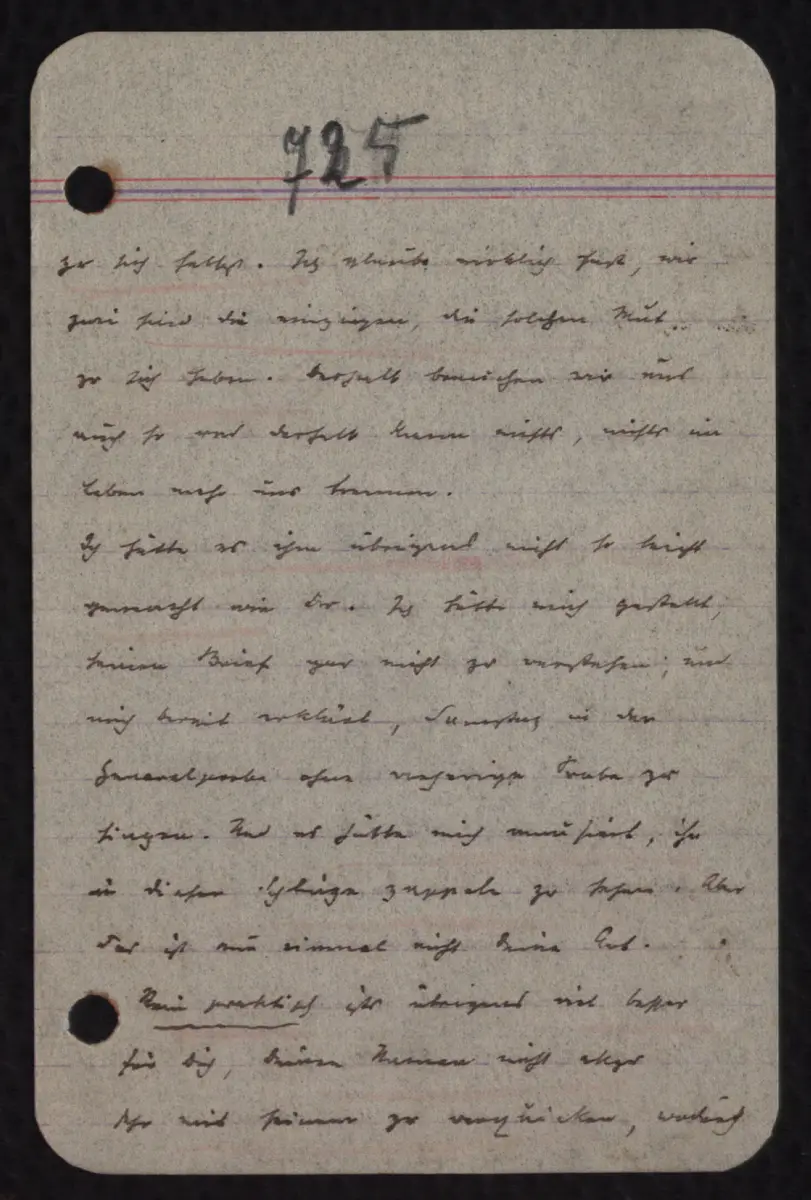 725
zu sich selbst. Ich glaube wirklich fast, wir
zwei sind die einzigen, die solchen Mut
zu sich haben. Deshalb brauchen wir uns
auch so und deshalb kann nichts, nichts im
Leben mehr uns trennen.
Ich hätte es ihm übrigens nicht so leicht
gemacht wie Du. Ich hätte mich gestellt,
seinen Brief gar nicht zu verstehen; und
mich bereit erklärt, Samstag in der
Generalprobe ohne vorherige Probe zu
singen. Und es hätte mich amüsiert, ihn
in dieser Schlinge zappeln zu sehen. Aber
das ist nun einmal nicht deine Art.
Rein praktisch ists übrigens viel besser
für Dich, deinen Namen nicht allzu
sehr mit seinem zu verquicken, wodurch